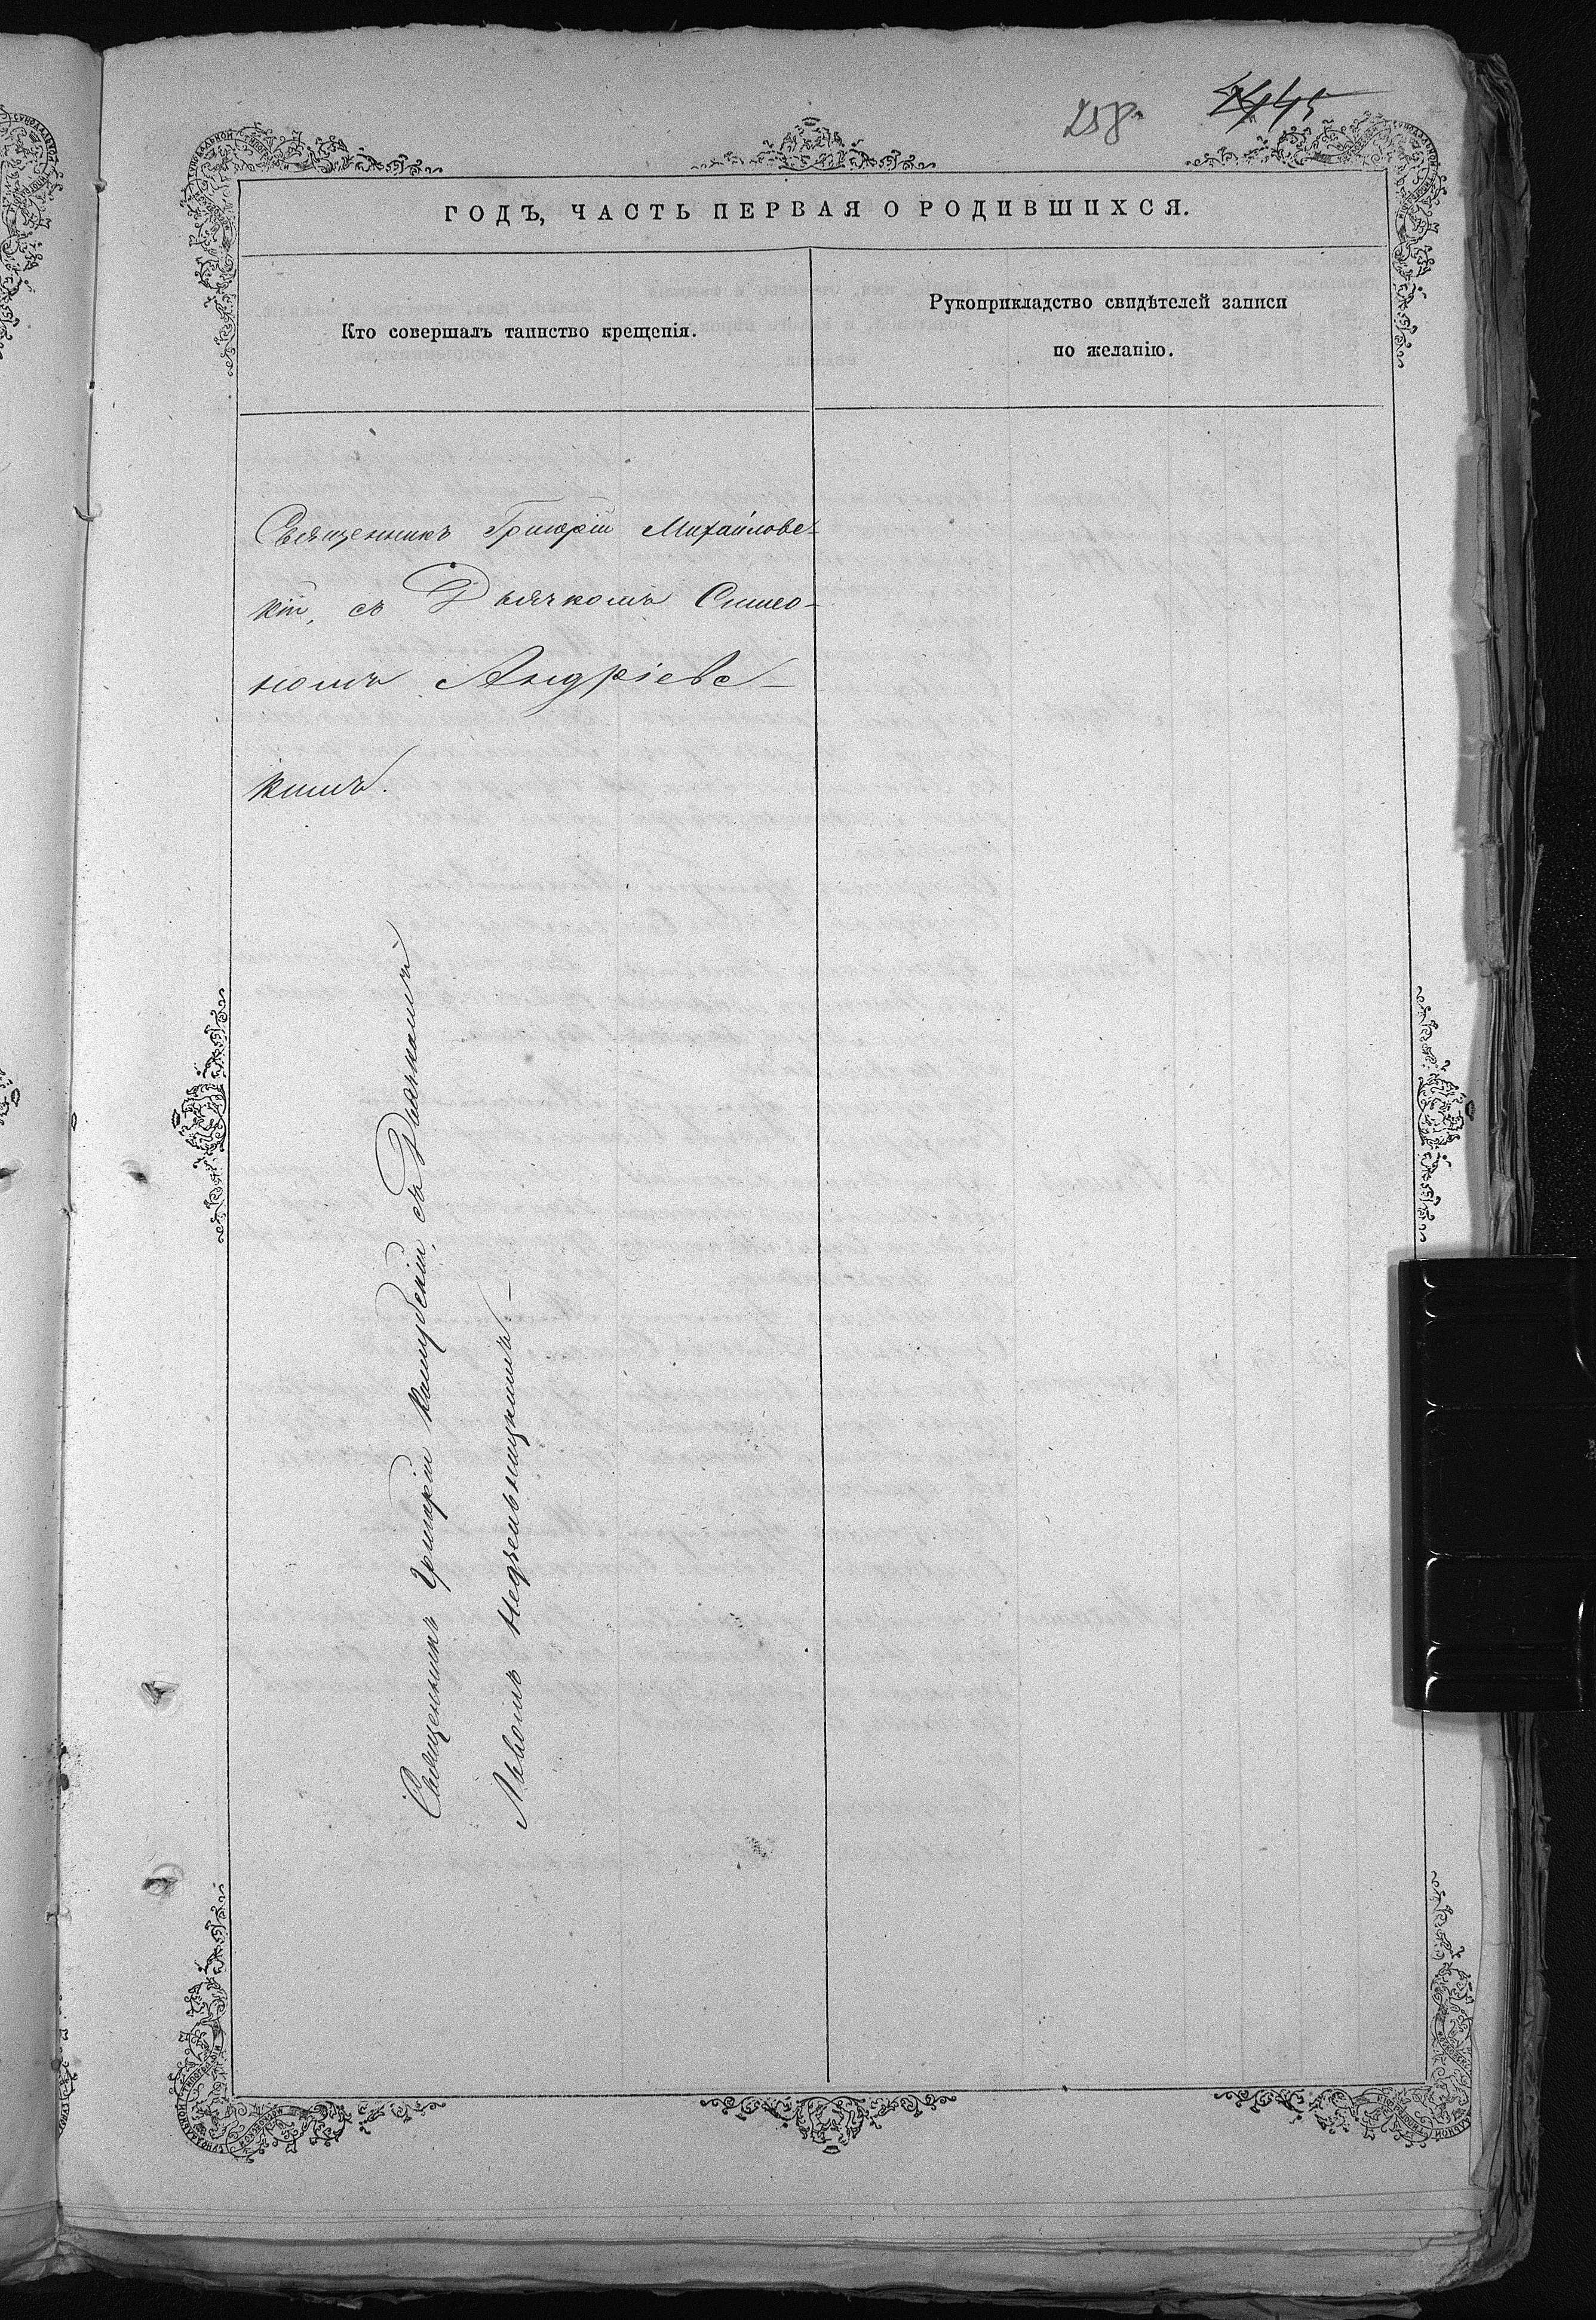 258.
ГОДЪ, ЧАСТЬ ПЕРВАЯ О РОДИВШИХСЯ.
Кто совершалъ таинство крещенія.
Рукоприкладство свидѣтелей записи
по желанію.
Священникъ Григорій Михайловс-
кій, съ Дьячкомъ Симео-
номъ Андріевс-
кимъ.
Священникъ Григорій съ Дьячкомъ
Львомъ Недзельницкимъ